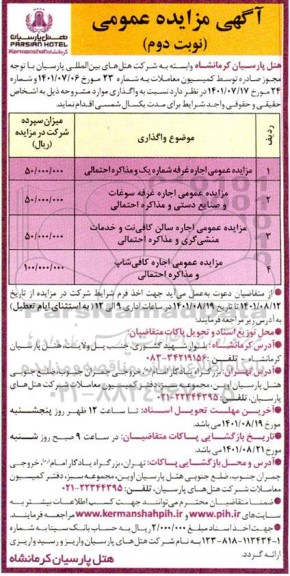 هتل پارسیان
PARSIAN HOTEL
کرمانشاه Kermanshah
آگهی مزایده عمومی
(نوبت دوم)
هتل پارسیان کرمانشاه وابسته به شرکت هتل‌های بین‌المللی پارسیان با توجه
مجوز صادره توسط کمیسیون معاملات به شماره ۲۳ مورخ ۱۴۰۱/۰۷/۰۶ و شماره
۲۴ مورخ ۱۴۰۱/۰۷/۱۷ در نظر دارد نسبت به واگذاری موارد مشروحه ذیل به اشخاص
حقیقی و حقوقی واجد شرایط برای مدت یکسال شمسی اقدام نماید.
ردیف
موضوع واگذاری
میزان سپرده
شرکت در مزایده
(ریال)
۱ مزایده عمومی اجاره غرفه شماره یک و مذاکره احتمالی ۵۰/۰۰۰/۰۰۰
۲ مزایده عمومی اجاره غرفه سوغات
و صنایع دستی و مذاکره احتمالی ۵۰/۰۰۰/۰۰۰
۳ مزایده عمومی اجاره سالن کافی‌نت و خدمات
منشی‌گری و مذاکره احتمالی ۵۰/۰۰۰/۰۰۰
۴ مزایده عمومی اجاره کافی‌شاپ
و مذاکره احتمالی ۱۰۰/۰۰۰/۰۰۰
از متقاضیان دعوت به‌عمل می‌آید جهت اخذ فرم شرایط شرکت در مزایده از تاریخ
۱۴۰۱/۰۸/۱۲ تا تاریخ ۱۴۰۱/۰۸/۱۹ در ساعات اداری ۹ الی ۱۲ (به استثنای ایام تعطیل)
به آدرس زیر مراجعه فرمایند:
محل توزیع اسناد و تحویل پاکات متقاضیان:
آدرس کرمانشاه: بلوار شهید کشوری جنب پل ولایت هتل پارسیان
کرمانشاه تلفن: ۳۴۲۱۹۱۵۶-۰۸۳
آدرس تهران: بزرگراه یادگار امام(ره)، خروجی چمران جنوب، ضلع جنوبی
هتل پارسیان اوین، مجموعه سبز، دفتر کمیسیون معاملات شرکت هتل‌های
پارسیان، تلفن: ۲۲۳۴۴۳۹۵-۰۲۱
آخرین مهلت تحویل اسناد: تا ساعت ۱۲ ظهر روز پنجشنبه
مورخ ۱۴۰۱/۰۸/۱۹ می‌باشد.
تاریخ بازگشایی پاکات متقاضیان: در ساعت ۹ صبح روز شنبه
مورخ ۱۴۰۱/۰۸/۲۱ می‌باشد.
آدرس و محل بازگشایی پاکات: تهران، بزرگراه یادگار امام(ره)، خروجی
چمران جنوب، ضلع جنوبی هتل پارسیان اوین، مجموعه سبز، دفتر کمیسیون
معاملات شرکت هتل‌های پارسیان، تلفن: ۲۲۳۴۴۳۹۵-۰۲۱
متقاضیان محترم می‌توانند جهت کسب اطلاعات بیشتر به
سایت‌های www.pih.ir و www.kermanshahpih.ir مراجعه فرمایند.
جهت اخذ اسناد مبلغ ۲/۰۰۰/۰۰۰ ریال به حساب بانک سینا به شماره
۱-۱۱۲۴۳۴-۸۱۸-۱۲۳ به نام شرکت هتل‌های پارسیان واریز و رسید واریزی
ارائه گردد.
هتل پارسیان کرمانشاه